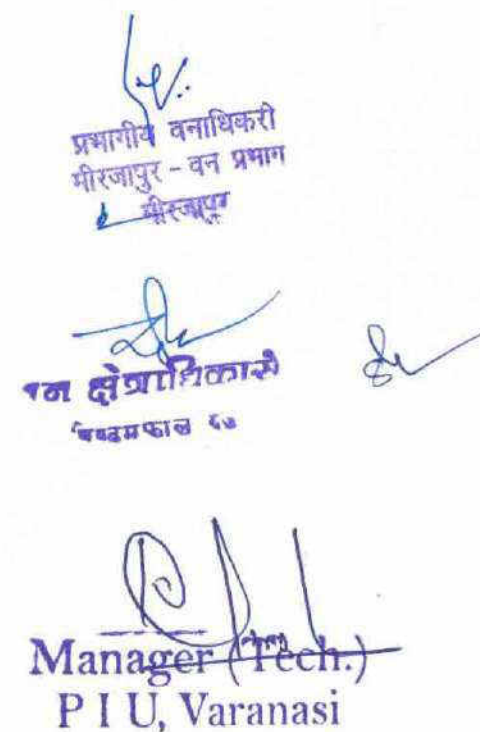 प्रभागीय वनाधिकरी
मीरजापुर - वन प्रभाग
मीरजापुर
वन क्षेत्राधिकारी
Manager (Tech.)
P I U, Varanasi